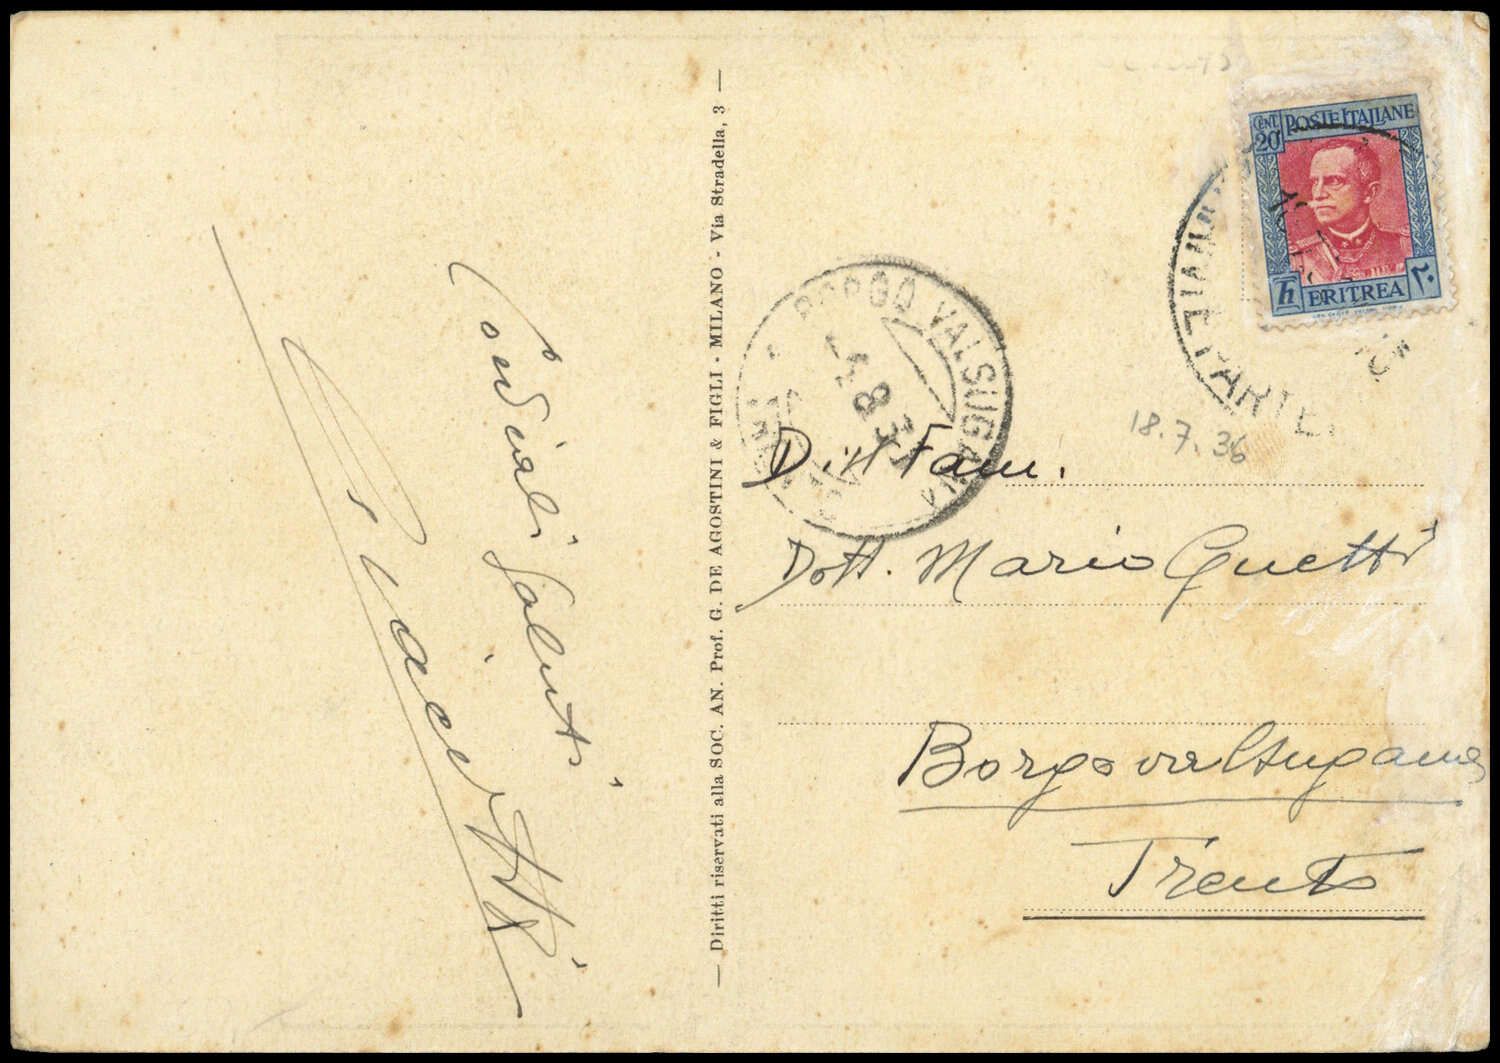 Cordiali Saluti
— Diritti riservati alla SOC. AN. Prof. G. DE AGOSTINI & FIGLI - MILANO - Via Stradella, 3 —
CENT. 20 POSTE ITALIANE
ERITREA ٢٠
PARTE
BORGO VALSUGANA
8
18.7.36
Dist Fam.
Dott. Mario Guetti
Borgovalsugana
Trento